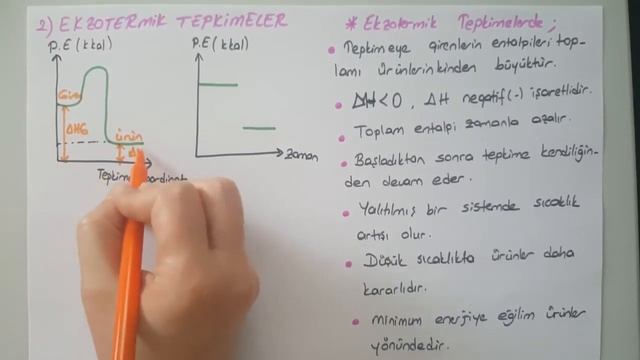 2) EKZOTERMİK TEPKİMELER
P.E (kkal)
P.E (kkal)
Giren
ΔHG
ürün
Tepkime
zaman
* Ekzotermik Tepkimelerde;
• Tepkimeye girenlerin entalpileri top-
lamı ürünlerinkinden büyüktür.
• ΔH<0, ΔH negatif (-) işaretlidir.
• Toplam entalpi zamanla azalır.
• Başladıktan sonra tepkime kendiliğin-
den devam eder.
• Yalıtılmış bir sistemde sıcaklık
artışı olur.
• Düşük sıcaklıkta ürünler daha
kararlıdır.
• minimum enerjiye eğilim ürünler
yönündedir.